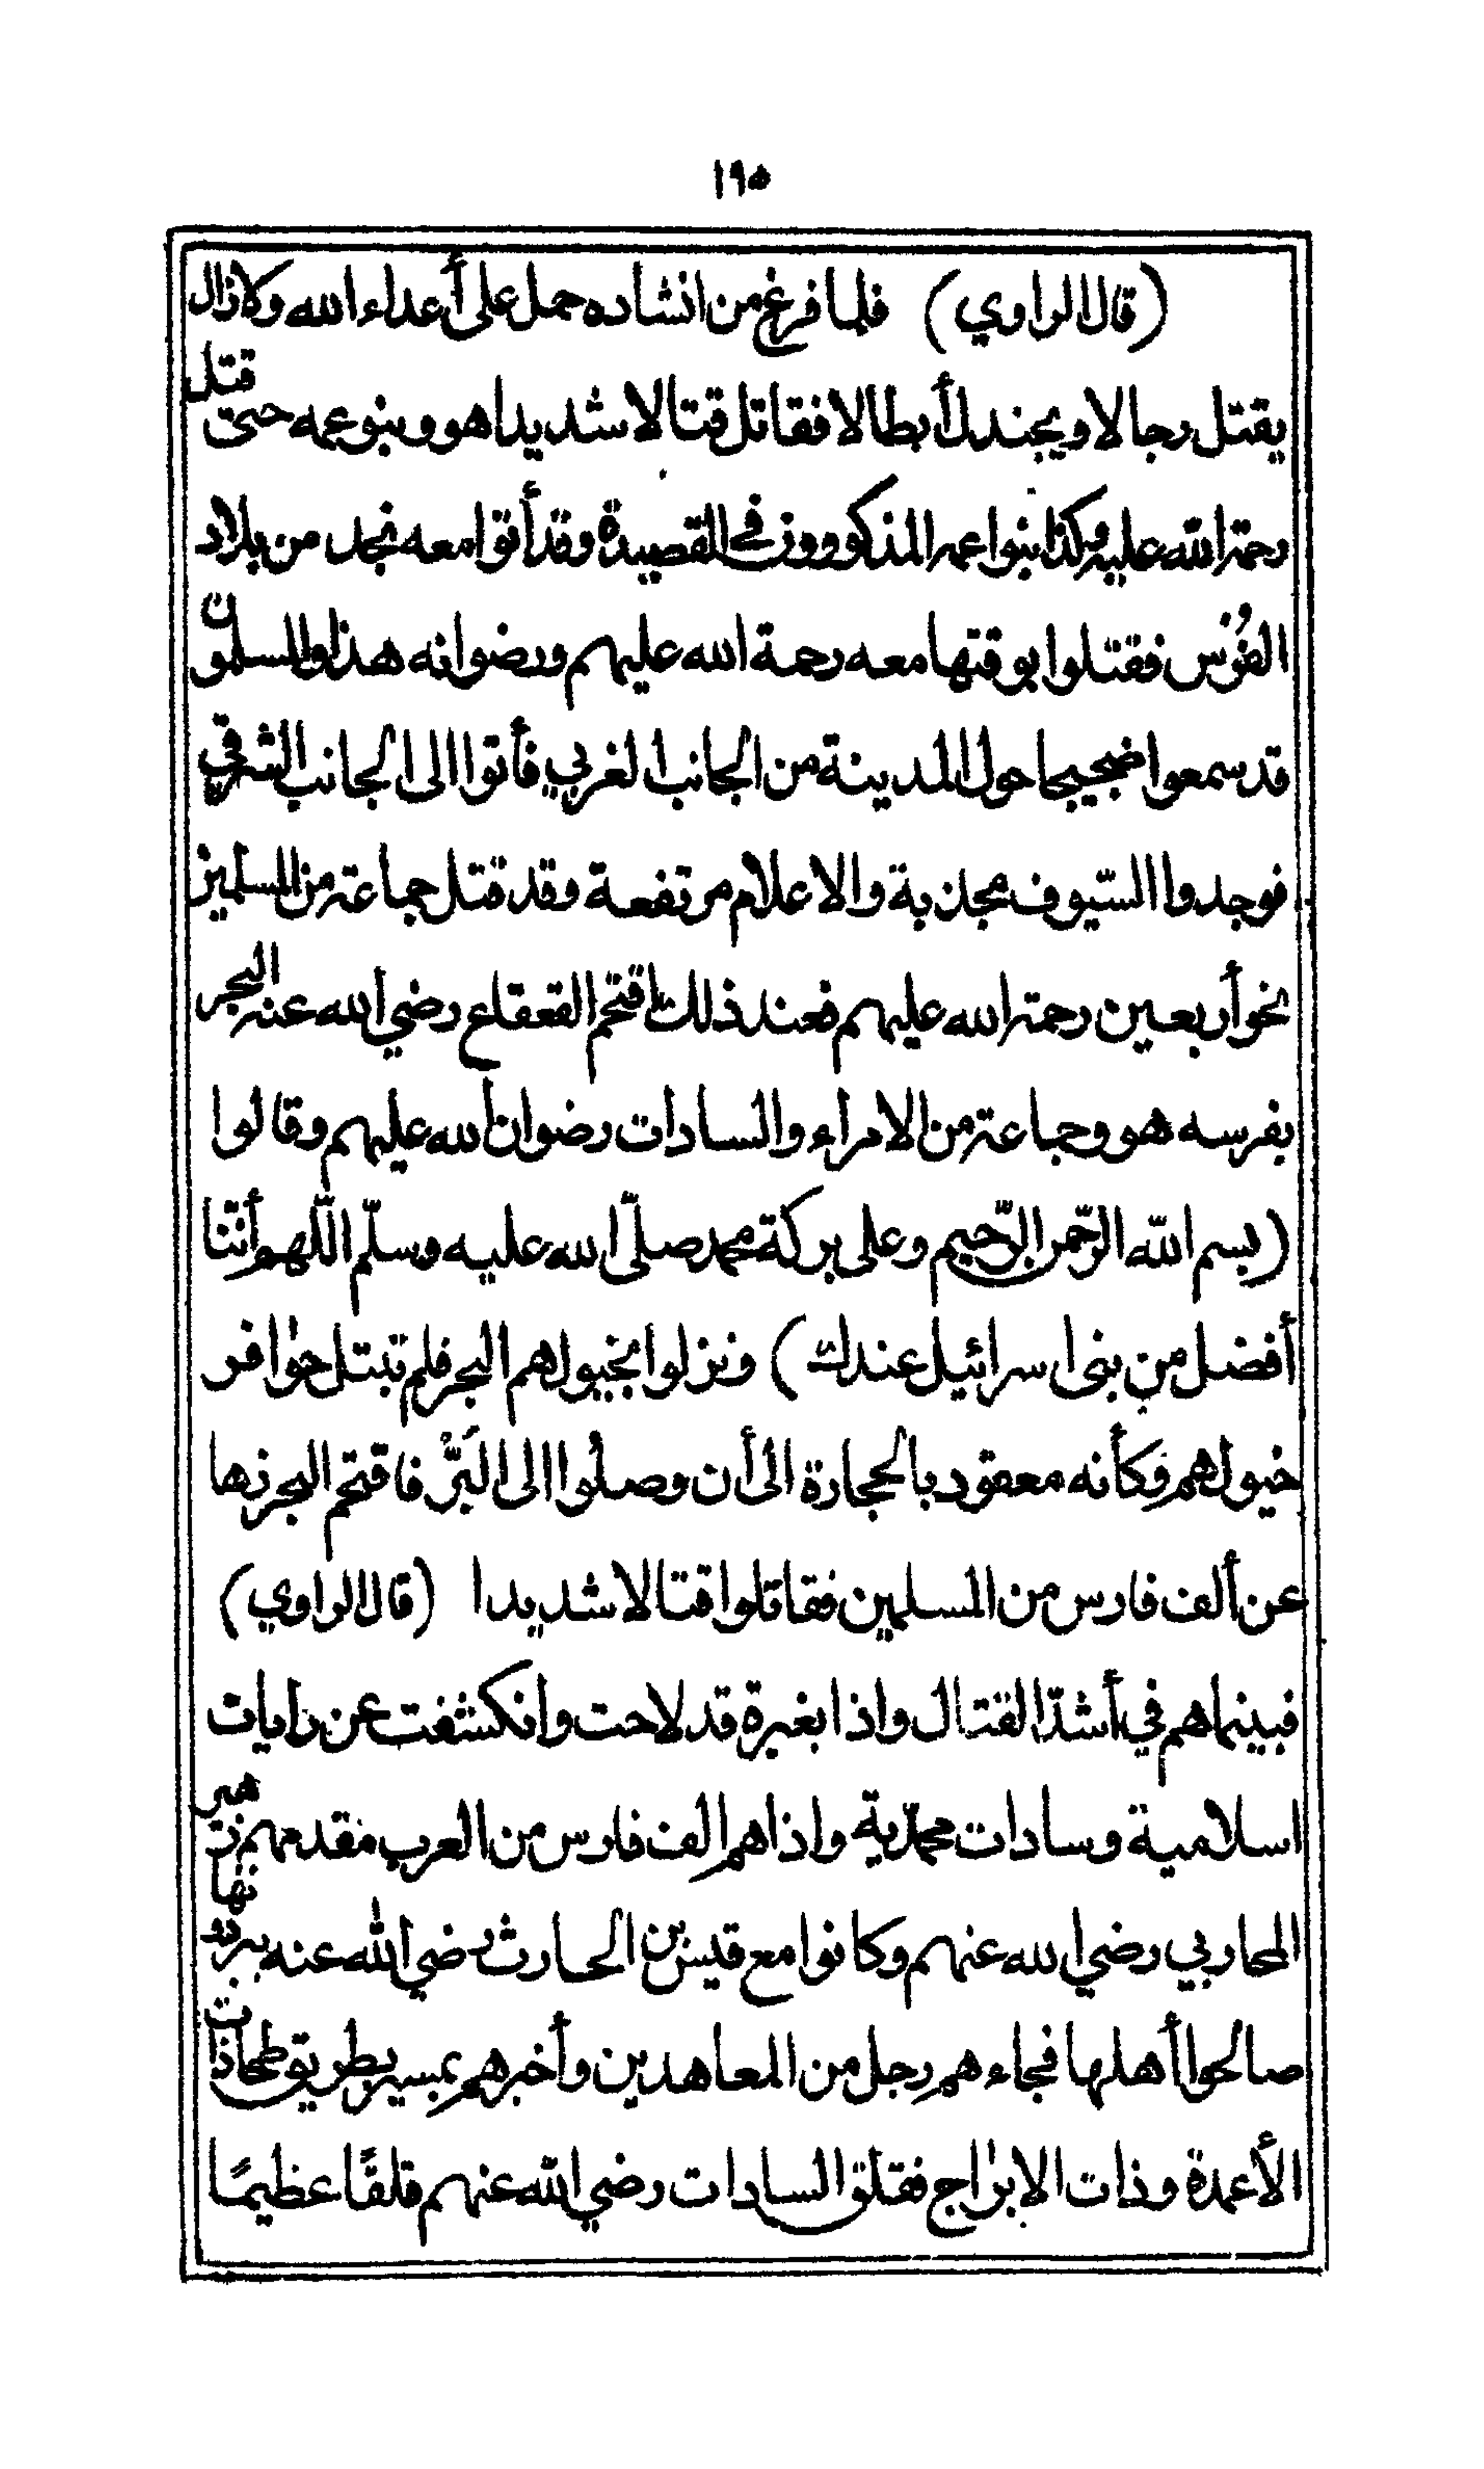 ١٩٥
(قال الراوي) فلما فرغ من انشاده حمل على أعداء الله ولا زال
يقتل رجالا ويجندل أبطالا فقاتل قتالا شديدا هو وبنو عمه حتى قتل
رحمة الله عليه وكذا بنوا عمه المذكوروون في القصيدة وقد أتوا معه نجد من بلاد
الفُرْس فقتلوا بوقتها معه رحمة الله عليهم ورضوانه هذا والمسلمون
قد سمعوا ضجيجا حول المدينة من الجانب الغربي فأتوا الى الجانب الشرقي
فوجدوا السّيوف مجذبة والاعلام مرتفعة وقد قتل جماعة من المسلمين
نحو أربعين رحمة الله عليهم فعند ذلك اقتحم القعقاع رضي الله عنه البحر
بفرسه هو وجماعة من الامراء والسادات رضوان الله عليهم وقالوا
(بسم الله الرّحمن الرّحيم وعلى بركة محمد صلّى الله عليه وسلّم اللّهم أنّنا
أفضل من بنى اسرائيل عندك) ونزلوا بخيولهم البحر فلم تبتل حوافر
خيولهم وكأنه معقود بالحجارة الى أن وصلُوا الى البَرّ فاقتحم البحر زها
عن ألف فارس من المسلمين فقاتلوا قتالا شديدا (قال الراوي)
فبينما هم في أشدّ القتال واذا بغبرة قد لاحت وانكشفت عن رايات
اسلامية وسادات محمّدية واذا هم الف فارس من العرب مقدمهم زهير
المحاربي رضي الله عنهم وكانوا مع قيس بن الحارث رضي الله عنه ببردنها
صالحوا أهلها فجاءهم رجل من المعاهدين وأخبرهم بمسير بطريق طحا ذات
الأعمدة وذات الابراج فقلق السادات رضي الله عنهم قلقًا عظيمًا